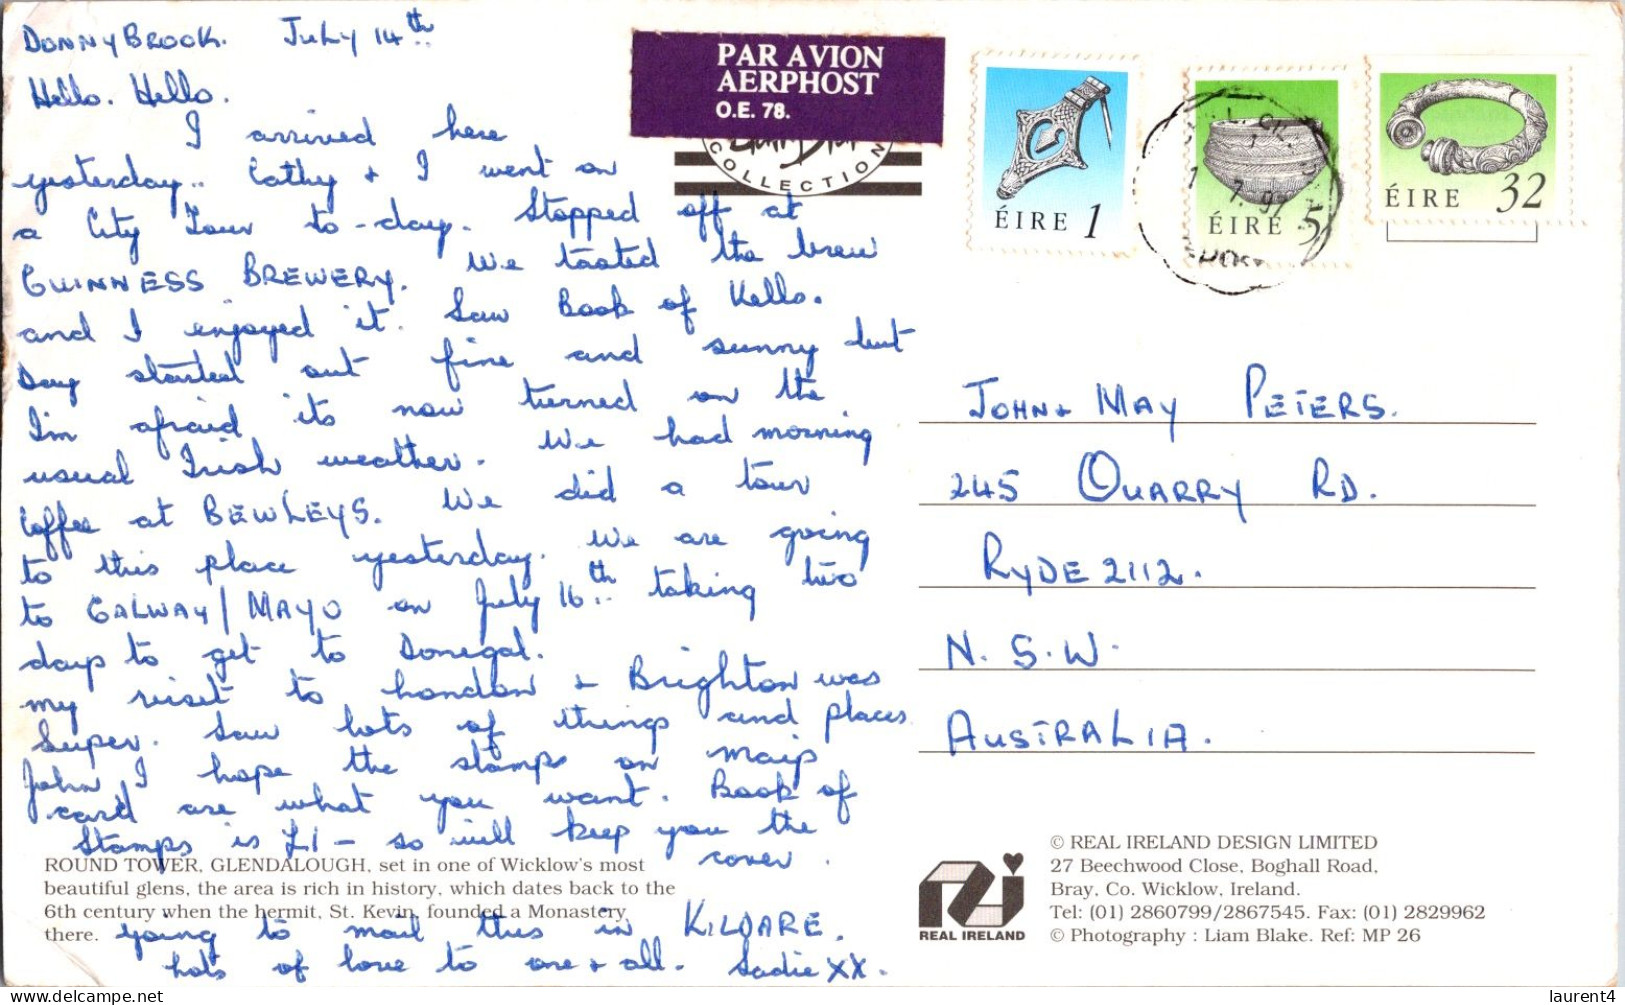 DONNYBROOK. JULY 14th
Hello. Hello.
I arrived here
yesterday.. Cathy + I went on
a City Tour to-day. Stopped off at
GUINNESS BREWERY. We tasted the brew
and I enjoyed it. Saw Book of Kells.
Day started out fine and sunny but
I'm afraid its now turned on the
usual Irish weather. We had morning
Coffee at BEWLEYS. We did a tour
to this place yesterday. We are going
to GALWAY/MAYO on July 16th.. taking two
days to get to Donegal.
my visit to London + Brighton was
Super. Saw lots of things and places.
John I hope the stamps on
card are what you want. Book of
Stamps is £1 - so will keep you the
cover.
going to mail this in KILDARE.
Lots of love to one + all. Sadie XX.
ROUND TOWER, GLENDALOUGH, set in one of Wicklow's most
beautiful glens, the area is rich in history, which dates back to the
6th century when the hermit, St. Kevin, founded a Monastery
there.
PAR AVION
AERPHOST
O.E. 78.
COLLECTION
ÉIRE 1
ÉIRE 5
ÉIRE 32
JOHN + MAY PETERS.
245 QUARRY RD.
RYDE 2112.
N.S.W.
AUSTRALIA.
REAL IRELAND
© REAL IRELAND DESIGN LIMITED
27 Beechwood Close, Boghall Road,
Bray, Co. Wicklow, Ireland.
Tel: (01) 2860799/2867545. Fax: (01) 2829962
© Photography : Liam Blake. Ref: MP 26
delcampe.net
laurent4